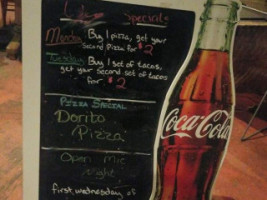 Specials
Monday Buy 1 pizza, get your
second pizza for $2
Tuesday Buy 1 set of tacos,
get your second set of tacos
for $2
Pizza Special
Dorito
Pizza
Open Mic
Night
first wednesday of
Coca-Cola